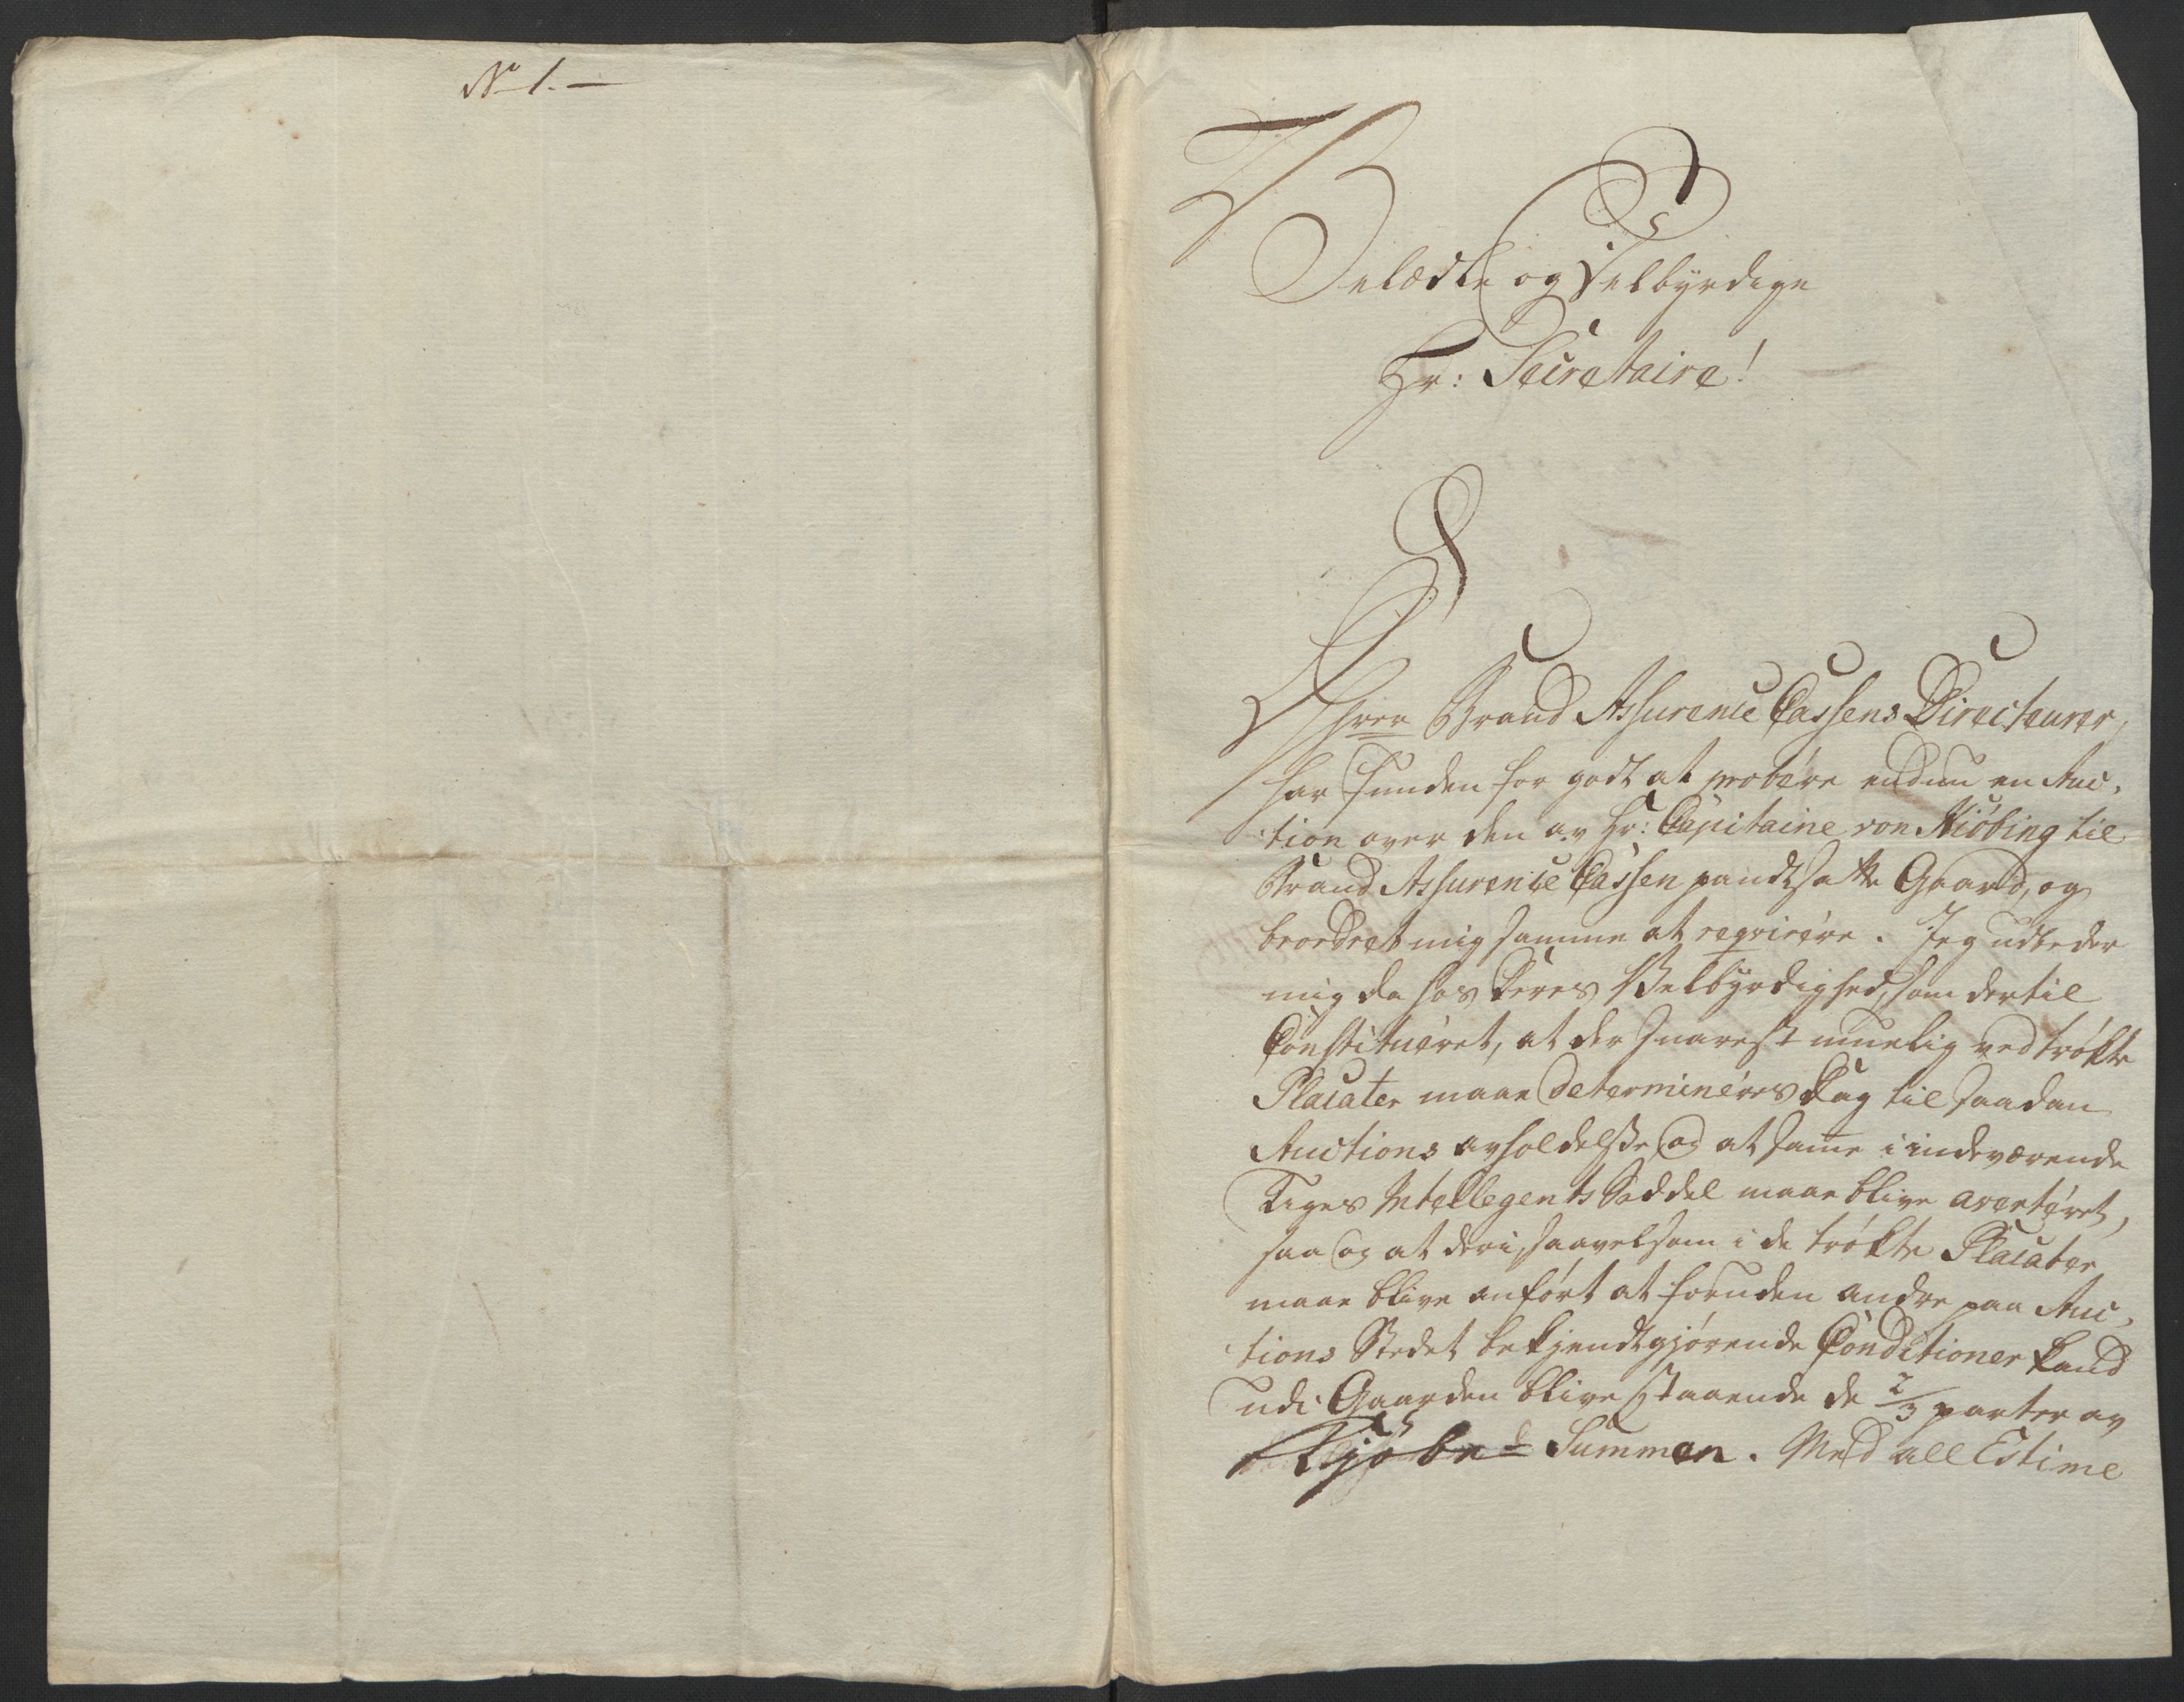 No 1. —
Velædle og Velbyrdige
Hr: Secretaire!
Brand Assurence Cassens Directeurer,
har funden for godt at probére endnu en Auc-
tion over den av Hr: Capitaine von Kiöbing til
Brand Assurence Cassen pandtsatte Gaard, og
beordret mig samme at reqvirére. Jeg udbeder
mig da hos Deres Velbyrdighed, som dertil
Constitueret, at der snarest muelig ved trökte
Placater maae determinéres Dag til saadan
Auctions avholdelse og at same i indeværende
Uges Intellegents Seddel maae blive averteret,
saa og at deri, saavelsom i de trökte Placater
maae blive anfört at foruden andre paa Auc-
tions Stedet bekjendtgjörende Conditioner kand
udi Gaarden blive staaende de 2/3 parter av
Kjöbe Summen. Med all Estime